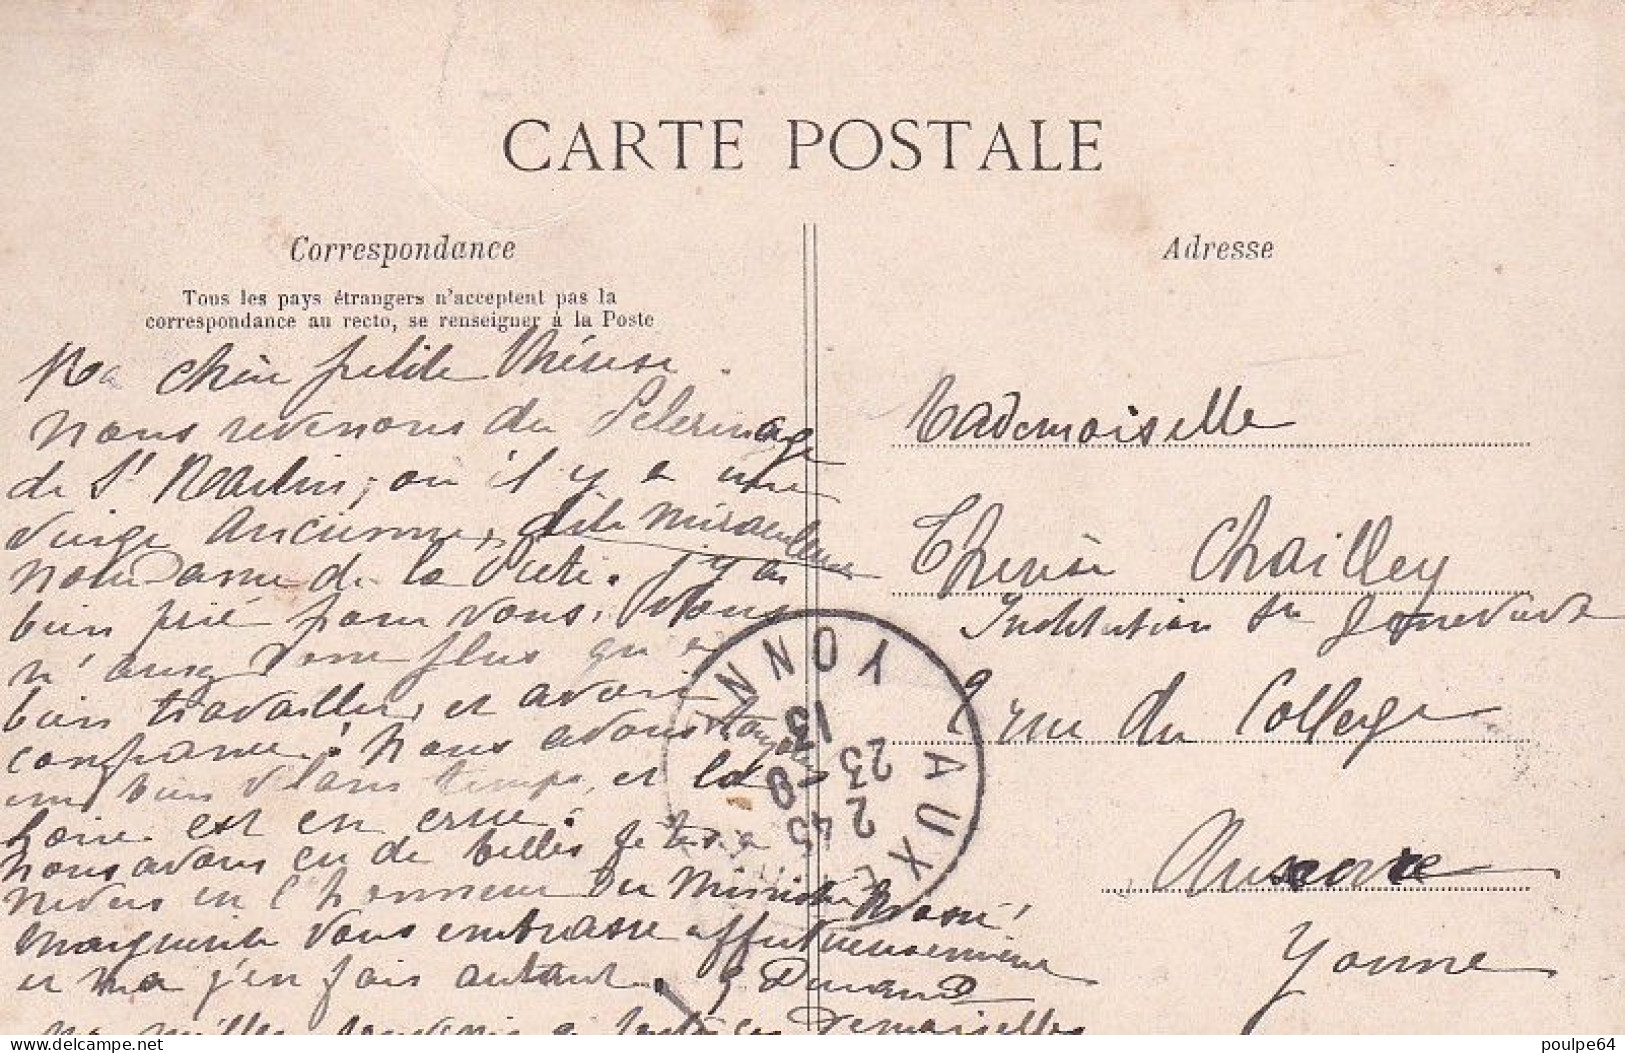 CARTE POSTALE
Correspondance
Tous les pays étrangers n'acceptent pas la
correspondance au recto, se renseigner à la Poste
Ma chère petite Thérèse.
Nous revenons du Pelerinage
de St Martin, où il y a une
vierge ancienne, dite miraculeuse
Notre Dame de la Pieté. J'y ai
bien prié pour vous. Vous
n'avez donc plus qu'à
bien travailler, et avoir
confiance. Nous avons
un bien temps, et la
Loire est en crue.
Nous avons eu de belles fêtes à
Nevers en l'honneur du Ministre Massé
Marguerite vous embrasse affectueusement
et moi j'en fais autant. Durand
souvenir à toutes ces Demoiselles
Adresse
Mademoiselle
Thérèse Chailley
Institution Ste Genevieve
2 rue du College
Auxerre
Yonne
AUXE YONN
13
23 -9
2 45
delcampe.net
poulpe64